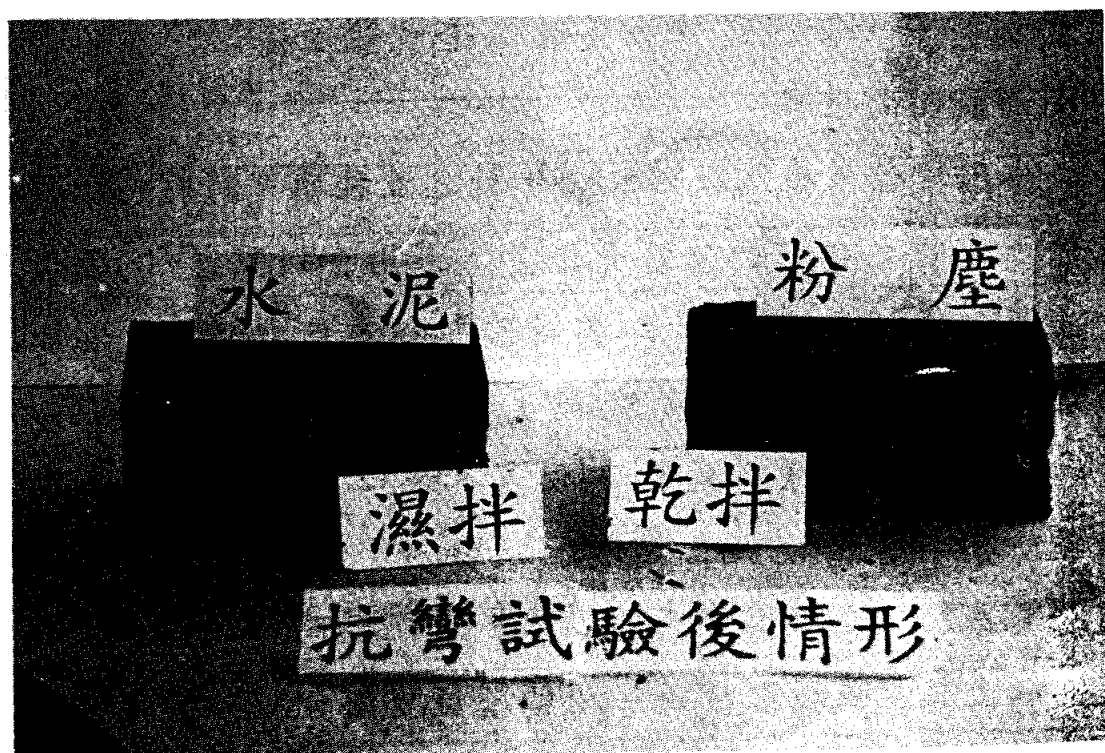 水泥
粉塵
濕拌
乾拌
抗彎試驗後情形